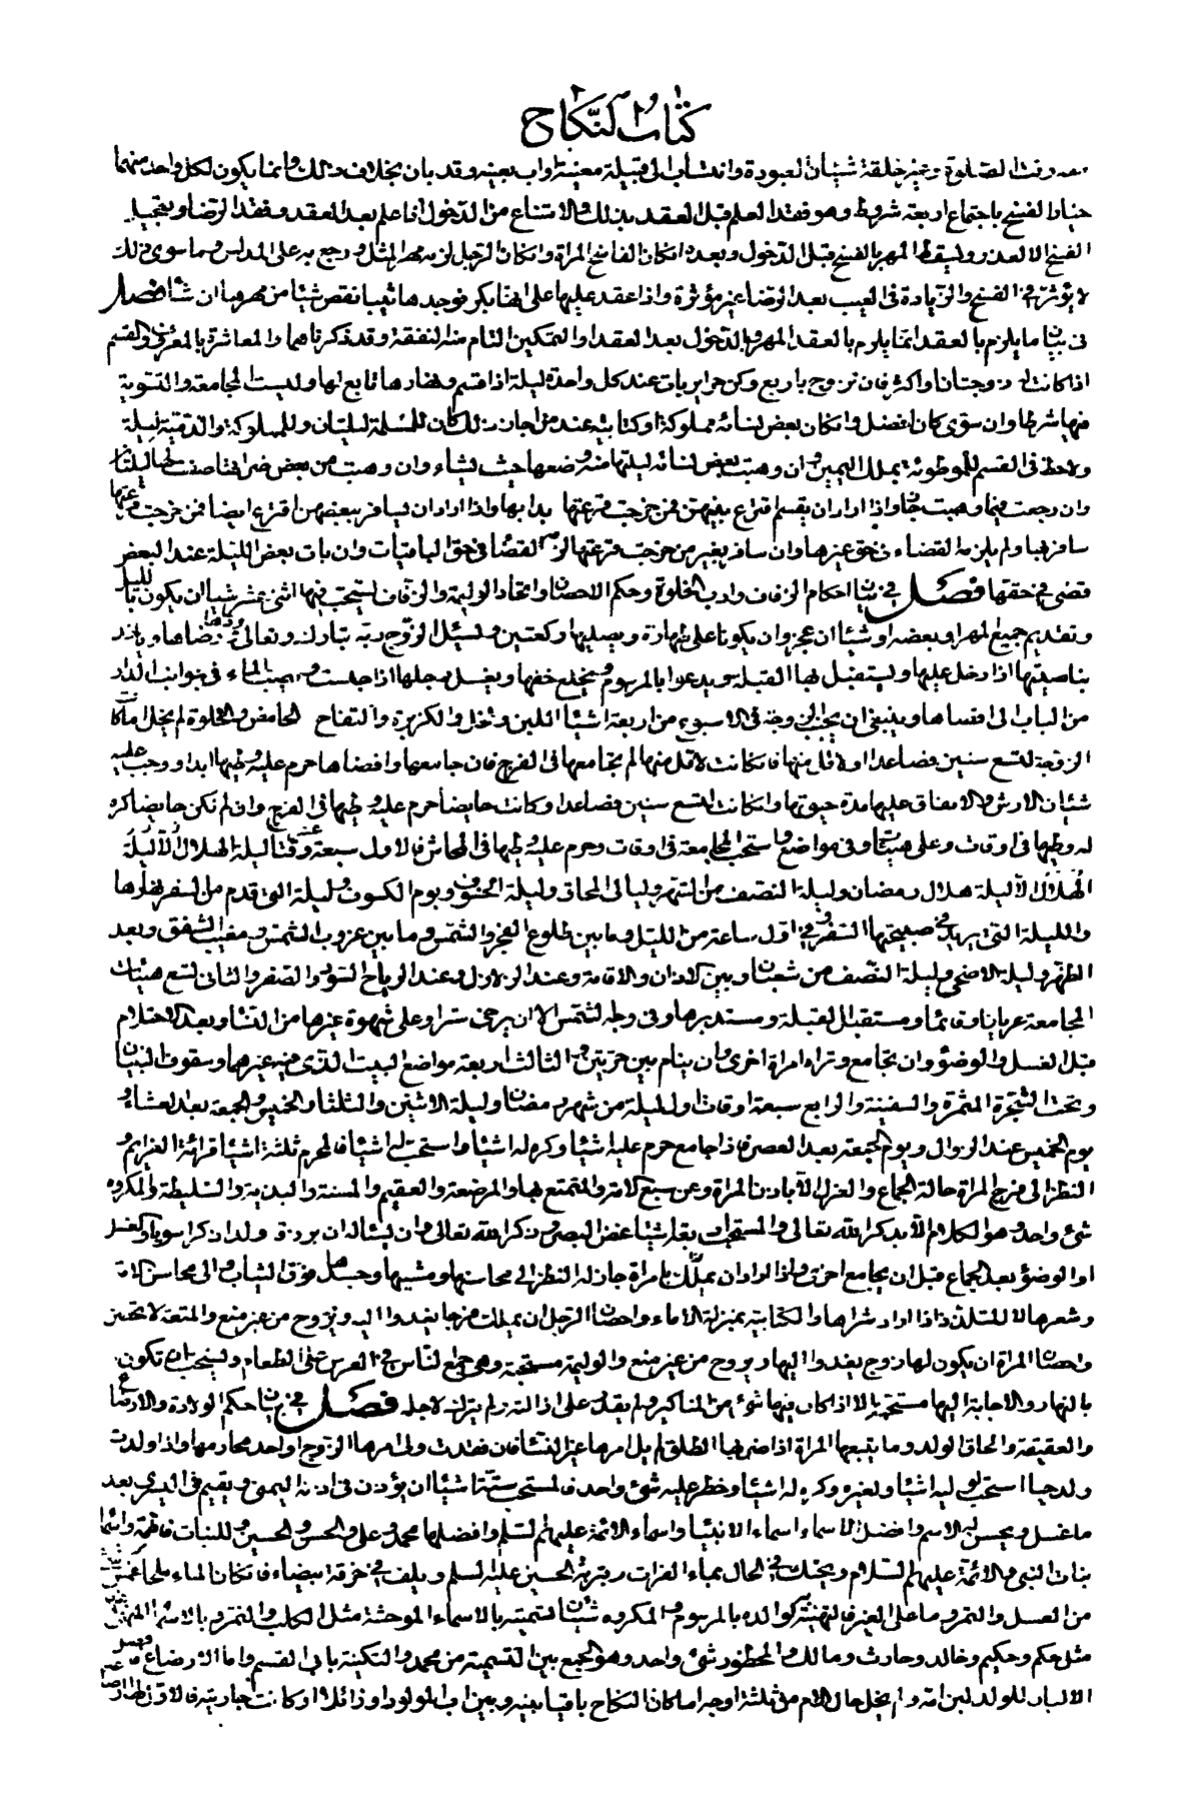 كتاب النكاح
وقت الصلوة وغير خلقة شيئان العبودة وانتساب الى قبيلة معينة واب بعينه وقد بان بخلاف ذلك وانما يكون لكل واحد منهما
خيار الفسخ باجتماع اربعة شروط وهو فقد العلم قبل العقد بذلك والامتناع من الدخول اذا علم بعد العقد وفقد الرضا وبتعجيل
الفسخ الا لعذر ويسقط المهر بالفسخ قبل الدخول وبعده ان كان الفاسخ المراة وان كان الرجل لزمه مهر المثل ورجع به على المدلس وما سوى ذلك
لا يؤثر في الفسخ والزيادة في العيب بعد الرضا غير مؤثرة واذا عقد عليها على انها بكر فوجدها ثيبا نقص شيئا من مهرها ان شاء فصل
في بيان ما يلزم بالعقد انما يلزم بالعقد المهر وبالدخول بعد العقد او التمكين التام منه النفقة وقد ذكرناهما والمعاشرة بالمعروف والقسم
اذا كانت له زوجتان او اكثر فان تزوج باربع وكن حراير بات عند كل واحدة ليلة اذا قسم ونهارها تابع لها وليست المجامعة والتسوية
فيها شرطا وان سوى كان افضل وان كان بعض نسائه مملوكة او كتابية عند من اجاز ذلك كان للمسلمة ليلتان وللمملوكة والذمية ليلة
ولا حظ في القسم للموطوئة بملك اليمين وان وهبت بعض نسائه ليلتها منه وضعها حيث يشاء وان وهبت من بعض ضرائرها صرفت لها ليلتان
وان رجعت فيما وهبت جاز واذا اراد ان يقسم اقترع بينهن فمن خرجت قرعتها بدا بها واذا اراد ان يسافر ببعضهن اقترع ايضا فمن خرجت قرعتها
سافر بها ولم يلزمه القضاء في حق غيرها وان سافر بغير من خرجت قرعتها لزمه القضاء في حق الباقيات وان بات بعض الليلة عند البعض
قضى في حقها فصل في بيان احكام الزفاف وادب الخلوة وحكم الاحصان واتخاذ الوليمة والزفاف يستحب فيها اثنى عشر شيئا ان يكون بالليل
وتقديم جميع المهر او بعضه او شيئا ان عجز وان يكونا على طهارة ويصليا ركعتين ويسئل الزوج ربه تبارك وتعالى رضاها وودها وياخذ
بناصيتها اذا دخل عليها ويستقبل بها القبلة ويدعوا بالمرسوم ويخلع خفها ويغسل رجلها اذا جلست ويصب الماء في جوانب الدار
من الباب الى اقصاها وينبغي ان يجنب الزوجة في الاسبوع من اربعة اشياء اللبن والخل والكزبرة والتفاح الحامض والخلوة لم يخل اما كانت
الزوجة لتسع سنين فصاعدا او لاقل منها فان كانت لاقل منها لم يجامعها في الفرج فان جامعها وافضاها حرم عليه وطيها ابدا ووجب عليه
شيئان الارش والانفاق عليها مدة حيوتها وان كانت لتسع سنين فصاعدا وكانت حايضا حرم عليه وطيها في الفرج وان لم تكن حايضا كره
له وطيها في اوقات وعلى هيئات وفي مواضع واستحب المجامعة في اوقات وحرم عليه وطيها في المحاش فالاول سبعة عشر وقتا ليلة الهلال الا ليلة
الهلال الا ليلة هلال رمضان وليلة النصف من الشهر وليالي المحاق وليلة الخسوف ويوم الكسوف وليلة التي قدم من السفر نهارها
والليلة التي يريد في صبيحتها السفر وفي اول ساعة من الليل وما بين طلوع الفجر والشمس وما بين غروب الشمس ومغيب الشفق وبعد
الظهر وليلة الاضحى وليلة النصف من شعبان وبين الاذان والاقامة وعند الزلازل وعند الرياح السود والصفر والثاني تسع هيئات
المجامعة عريانا وقائما ومستقبل القبلة ومستدبرها وفي وجه الشمس الا ان يرخى سترا وعلى شهوة غيرها من النساء وبعد الاحتلام
قبل الغسل والوضؤ وان يجامع وتراه امراة اخرى وان ينام بين حرتين والثالث اربعة مواضع البيت الذي فيه غيرها وسقوف البنيان
وتحت الشجرة المثمرة والسفينة والرابع سبعة اوقات اول ليلة من شهر رمضان وليلة الاثنين والثلثاء والخميس والجمعة بعد العشاء و
يوم الخميس عند الزوال ويوم الجمعة بعد العصر فاذا جامع حرم عليه اشياء وكره له اشياء واستحب له اشياء فالمحرم ثلثة اشياء قرائة العزايم و
النظر الى فرج المراة حالة الجماع والعزل الا باذن المراة وعن سبع الامة والمتمتع بها والمرضعة والعقيم والمسنة والبذية والسليطة والمكروه
شئ واحد وهو الكلام الا بذكر الله تعالى والمستحبات اربعة اشياء غض البصر وذكر الله تعالى وان يسئاله ان يرزقه ولدا ذكرا سويا والغسل
او الوضؤ بعد الجماع قبل ان يجامع اخرى واذا اراد ان يملك بامراة جاز له النظر الى محاسنها ومشيها وجسدها من فوق الثياب والى محاسن الامة
وشعرها لا للتلذذ اذا اراد شراها والكتابية بمنزلة الاماء واحصان الرجل ان يملك فرجا يغدوا اليه ويروح من غير منع والمتعة لا تحصن
واحصان المراة ان يكون لها زوج يغدوا اليها ويروح من غير منع والوليمة مستحبة وهي جمع الناس في العرس على الطعام ويستحب ان تكون
بالنهار والاجابة اليها مستحبة الا اذا كان فيها شئ من المناكير ولم يقدر على ازالته ولم يترك لاجله فصل في بيان حكم الولادة والارضاع
والعقيقة والحاق الولد وما يتبعها المراة اذا ضربها الطلق لم يل امرها غير النساء فان فقدت ولى امرها الزوج او احد محارمها واذا ولدت
ولدا حيا استحب لوليه اشياء ولغيره وكره له اشياء وحظر عليه شئ واحد فالمستحب ستة اشياء ان يؤذن في اذنه اليمنى ويقيم في اليسرى بعد
ما غسل ويحسن له الاسم وافضل الاسماء اسماء الانبياء واسماء الائمة عليهم السلم وافضلها محمد وعلى والحسن والحسين وللبنات فاطمة واسماء
بنات النبي والائمة عليهم السلام ويحنك في الحال بماء الفرات وبتربة الحسين عليه السلم ويلف في خرقة بيضاء فان كان الماء ملحا
من العسل والتمر وما على الغير فالتهنئة لوالده بالمرسوم والمكروه شيئان تسميته بالاسماء الموحشة مثل الكلب والنمر وبالاسماء
مثل حكم وحكيم وخالد وحارث ومالك والمحظور شئ واحد وهو الجمع بين التسمية من محمد والتكنية بابي القسم واما الارضاع
الالبان للولد لبن امه ولم يخل حال الام من ثلثة اوجه اما كان النكاح باقيا بينه وبين اب المولود او زائلا او كانت جاريته فالاول